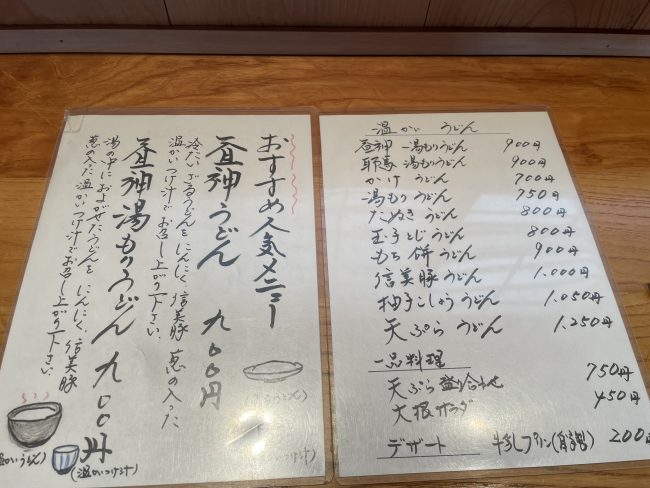 おすすめ人気メニュー
昼神うどん 九〇〇円
冷たいざるうどんをにんにく、信美豚、葱の入った
温かいつけ汁でお召し上がり下さい。
昼神湯もりうどん 九〇〇円
湯の中におよがせたうどんをにんにく、信美豚
葱の入った温かいつけ汁でお召し上がり下さい。
(温かいうどん)
(温かいつけ汁)
温かい うどん
昼神 湯もりうどん 900円
耶馬 湯もりうどん 900円
かけ うどん 700円
湯もり うどん 750円
たぬき うどん 800円
玉子とじうどん 800円
もち 餅 うどん 900円
信美豚うどん 1.000円
柚子こしょう うどん 1.050円
天ぷら うどん 1.250円
一品料理
天ぷら盛り合わせ 750円
大根サラダ 450円
デザート 牛乳プリン(自家製) 200円